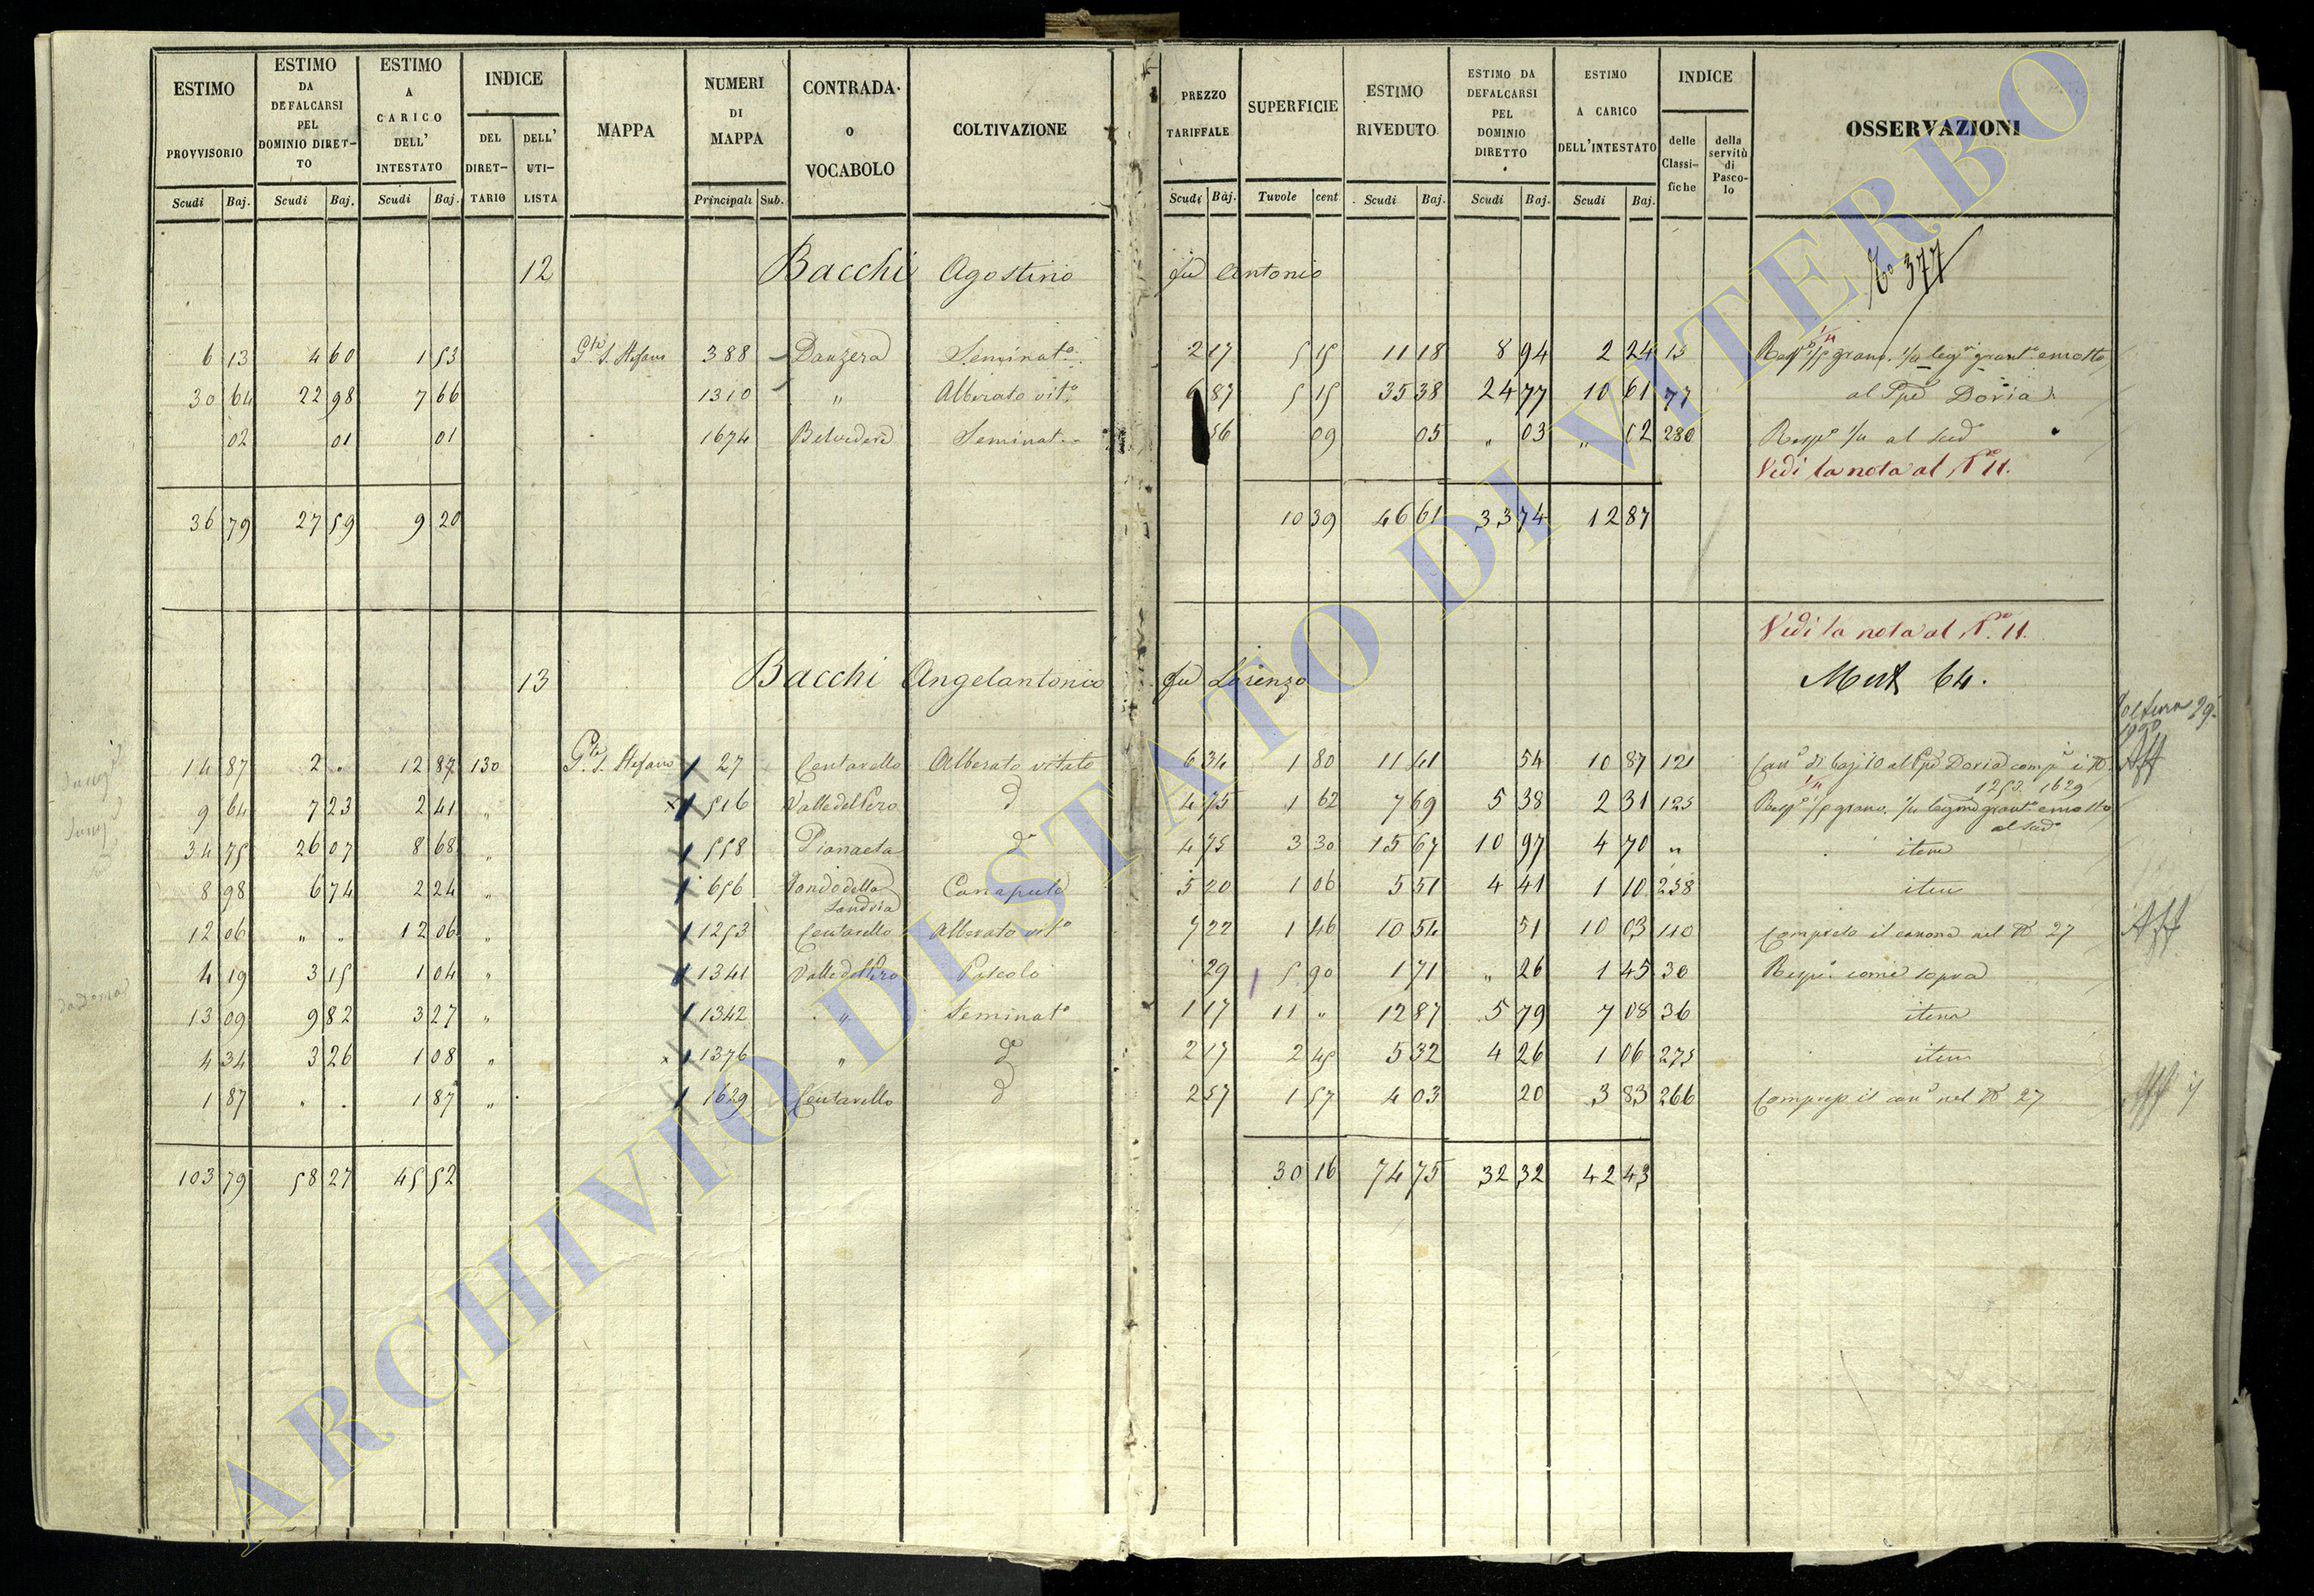 ESTIMO PROVVISORIO
ESTIMO DA DEFALCARSI PEL DOMINIO DIRETTO
ESTIMO A CARICO DELL' INTESTATO
INDICE
DEL DIRETTARIO
DELL' UTILISTA
MAPPA
NUMERI DI MAPPA
CONTRADA o VOCABOLO
COLTIVAZIONE
PREZZO TARIFFALE
SUPERFICIE
ESTIMO RIVEDUTO
ESTIMO DA DEFALCARSI PEL DOMINIO DIRETTO
ESTIMO A CARICO DELL'INTESTATO
INDICE
delle Classifiche
della servitù di Pascolo
OSSERVAZIONI
Scudi Baj. Scudi Baj. Scudi Baj. Principali Sub. Scudi Baj. Tavole cent Scudi Baj. Scudi Baj. Scudi Baj.
12 Bacchi Agostino fu Antonio 377
6 13 4 60 1 53 S. Stefano 388 Danzera Seminat.o 2 17 5 15 11 18 8 94 2 24 15
30 64 22 98 7 66 1310 " Alberato vit.o 6 87 5 15 35 38 24 77 10 61 77 al Doria
02 01 01 1674 Belvedere Seminat.o 56 09 05 " 03 " 02 280 al
Vedi la nota al N.o 11.
36 79 27 59 9 20 10 39 46 61 33 74 12 87
Vedi la nota al N.o 11.
13 Bacchi Angelantonio fu Lorenzo 64.
14 87 2 . 12 87 130 S. Stefano 27 Centarello Alberato vitato 6 34 1 80 11 41 54 10 87 121
1253. 1629
9 64 7 23 2 41 " 516 Valle del Pero d 4 75 1 62 7 69 5 38 2 31 125
34 75 26 07 8 68 " 558 Pianaeta d.o 4 75 3 30 15 67 10 97 4 70 " item
8 98 6 74 2 24 " 656 Canapule 5 20 1 06 5 51 4 41 1 10 238 item
12 06 " . 12 06 " 1253 Centarello Alberato vit.o 7 22 1 46 10 54 51 10 03 110 Compreso il canone nel N 27
4 19 3 15 1 04 " 1341 Valle del Pero Pascolo 29 5 90 1 71 " 26 1 45 30 come sopra
13 09 9 82 3 27 " 1342 " Seminat.o 1 17 11 " 12 87 5 79 7 08 36 item
4 34 3 26 1 08 " 1376 " d.o 2 17 2 45 5 32 4 26 1 06 275 item
1 87 . . 1 87 " 1629 Centarello d 2 57 1 57 4 03 20 3 83 266 nel N 27
103 79 58 27 45 52 30 16 74 75 32 32 42 43
ARCHIVIO DI STATO DI VITERBO